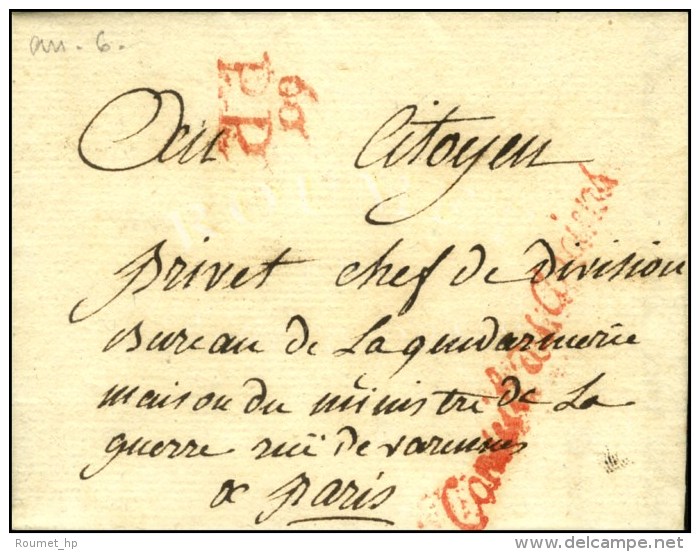 an. 6.
P.P.
69
Au Citoyen
privet chef de division
Bureau de La gendarmerie
maison du ministre de La
guerre rue de varennes
a paris
Roumet_hp
delcampe.net